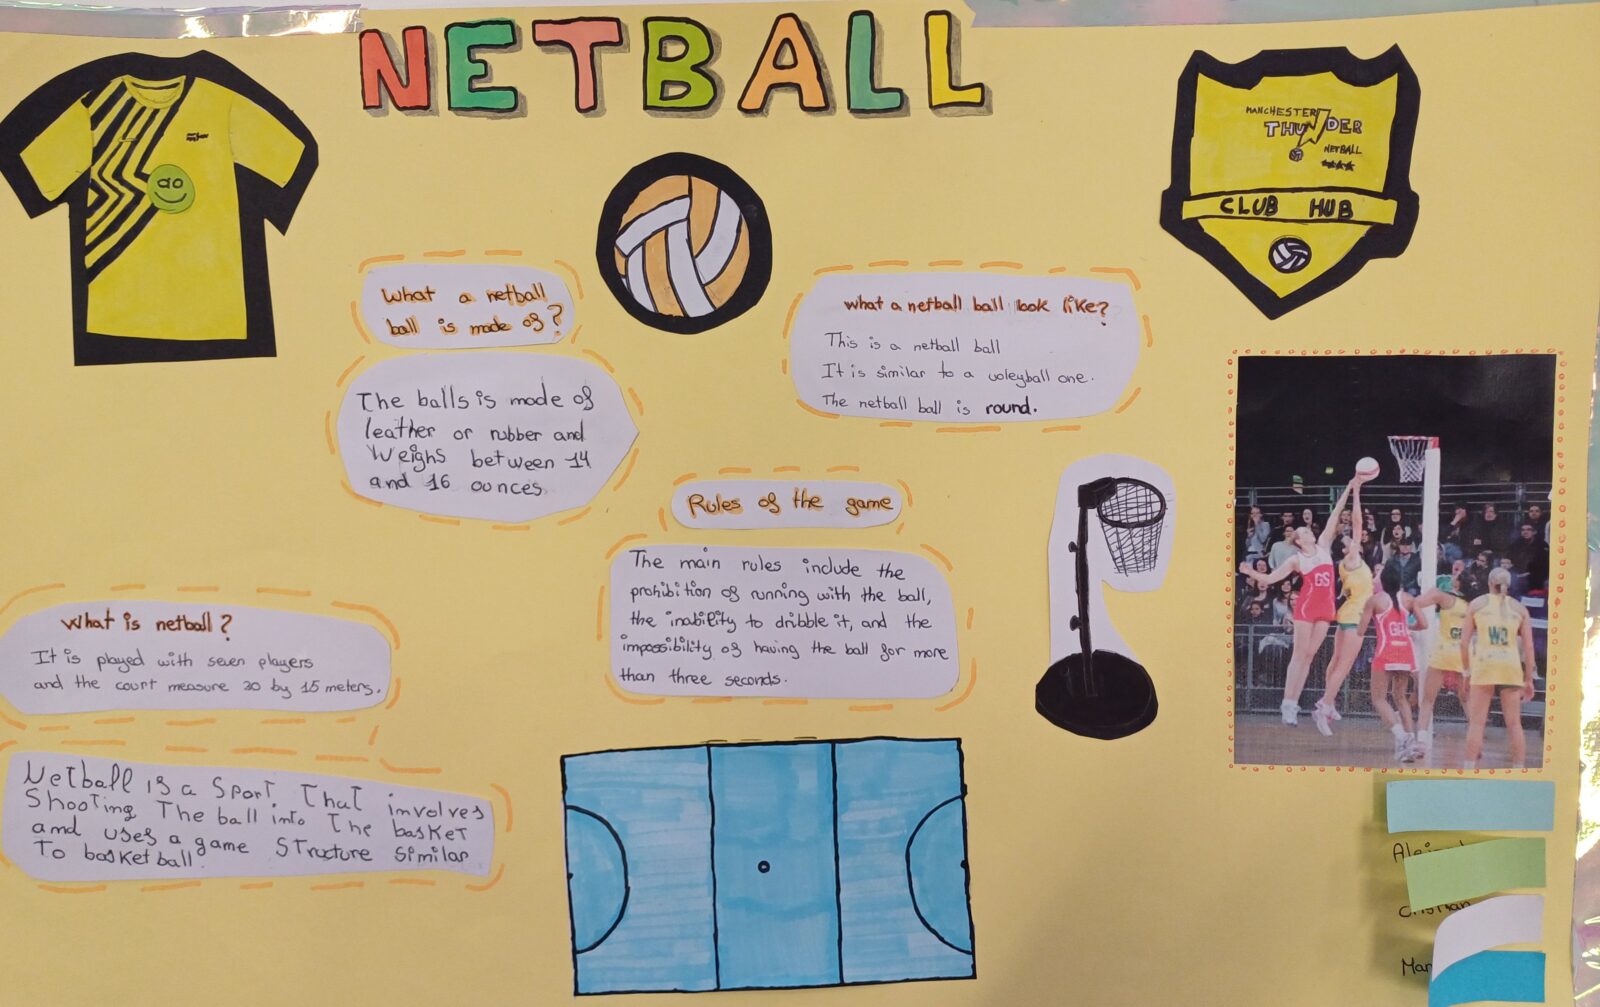 NETBALL
ao
MANCHESTER
THUNDER
NETBALL
CLUB HUB
What a netball
ball is made of?
The balls is made of
leather or rubber and
Weighs between 14
and 16 ounces.
what a netball ball look like?
This is a netball ball
It is similar to a voleyball one.
The netball ball is round.
Rules of the game
The main rules include the
prohibition of running with the ball,
the inability to dribble it, and the
impossibility of having the ball for more
than three seconds.
What is netball?
It is played with seven players
and the court measure 30 by 15 meters.
Netball is a sport that involves
Shooting The ball into the basket
and uses a game structure similar
To basketball.
GS
GA
WD
Cristian